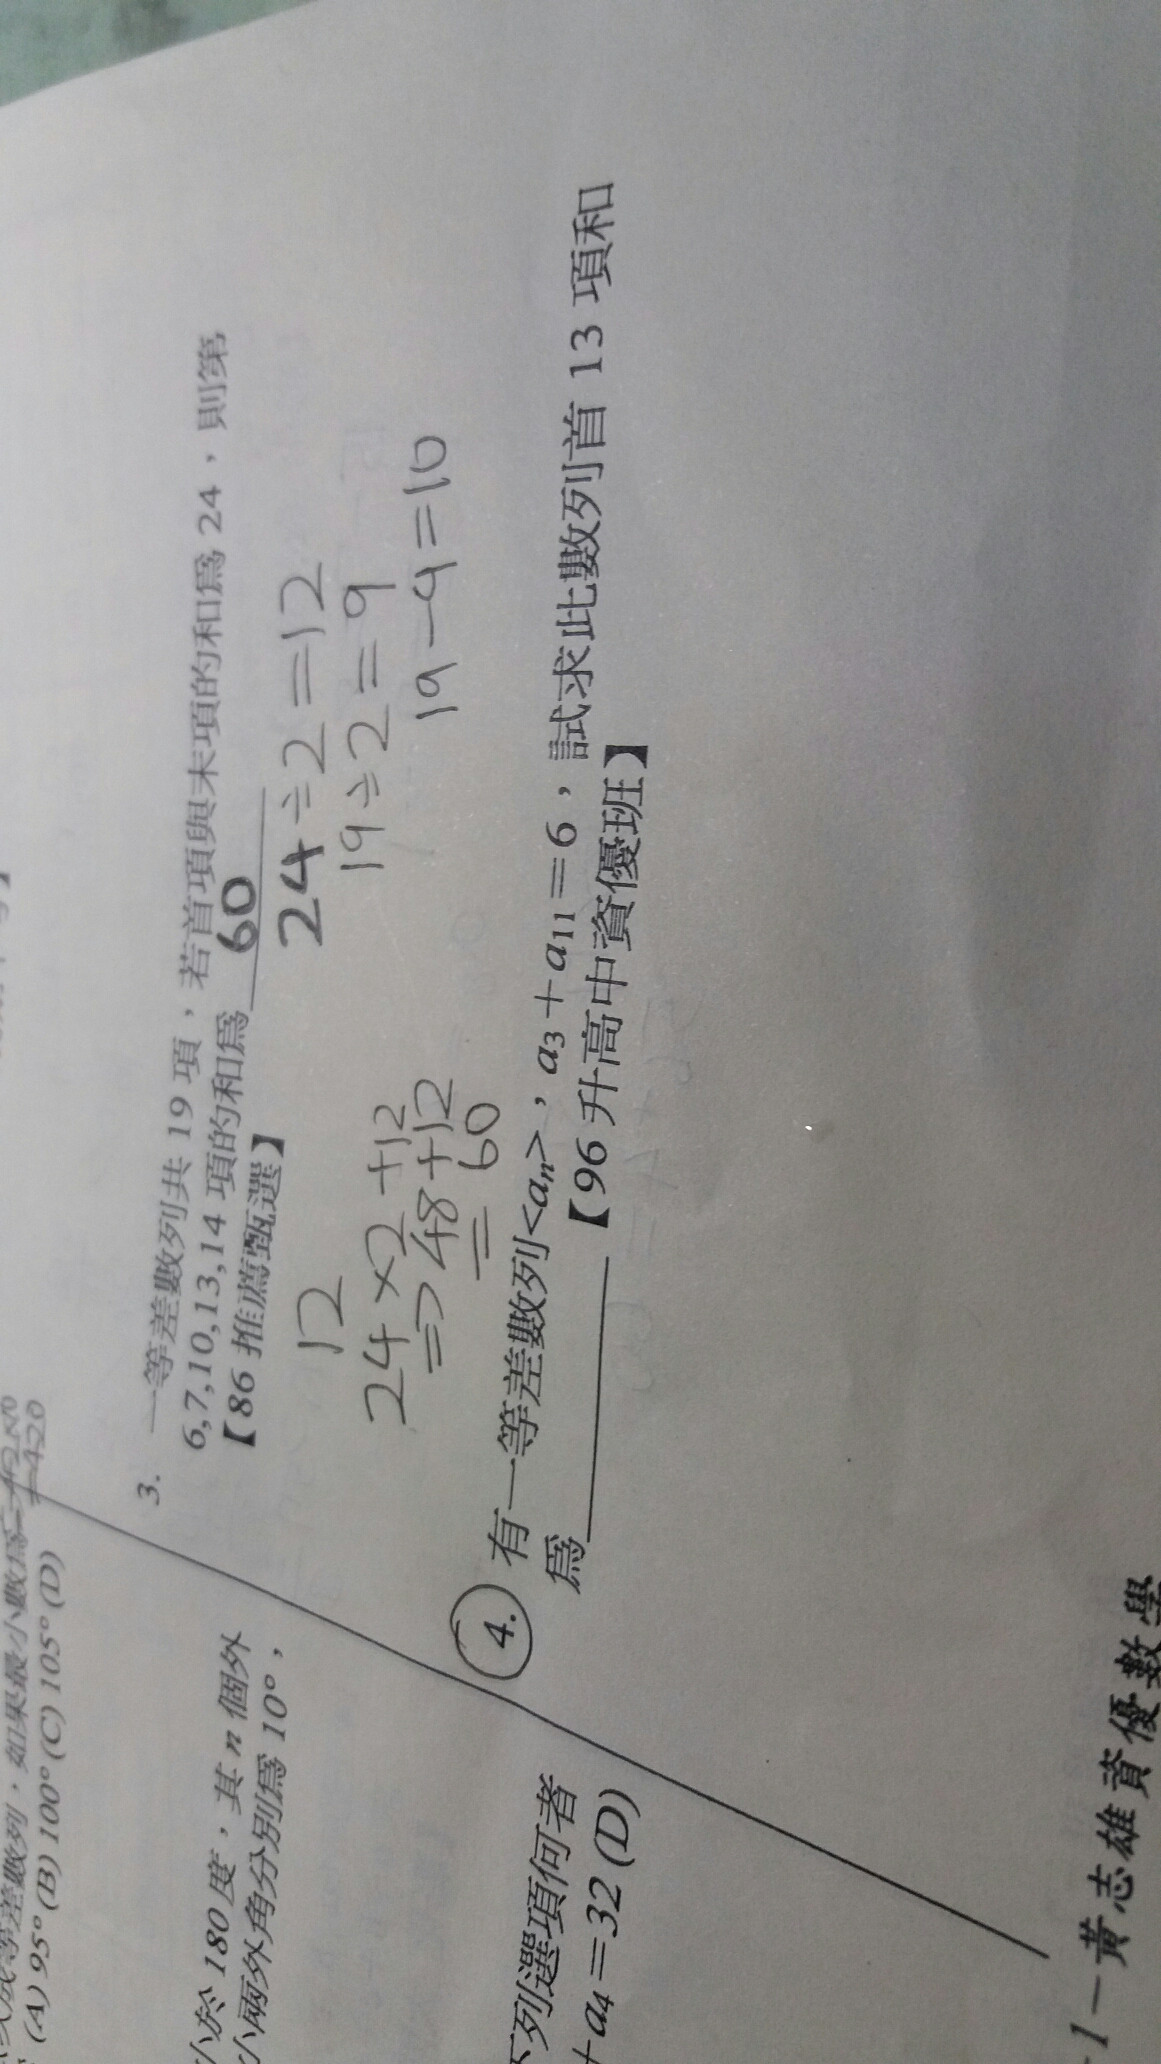 3. 一等差數列共 19 項，若首項與末項的和爲 24，則第
6,7,10,13,14 項的和爲 60
【86 推薦甄選】
24÷2=12
19÷2=9
19-9=10
12
24×2+12
=>48+12
=60
4. 有一等差數列<aₙ>，a₃+a₁₁=6，試求此數列首 13 項和
爲______【96 升高中資優班】
等差數列，如果最小數爲
=420
(A) 95° (B) 100° (C) 105° (D)
小於 180 度，其 n 個外
小兩外角分別爲 10°，
下列選項何者
+a₄=32 (D)
1－黃志雄資優數學